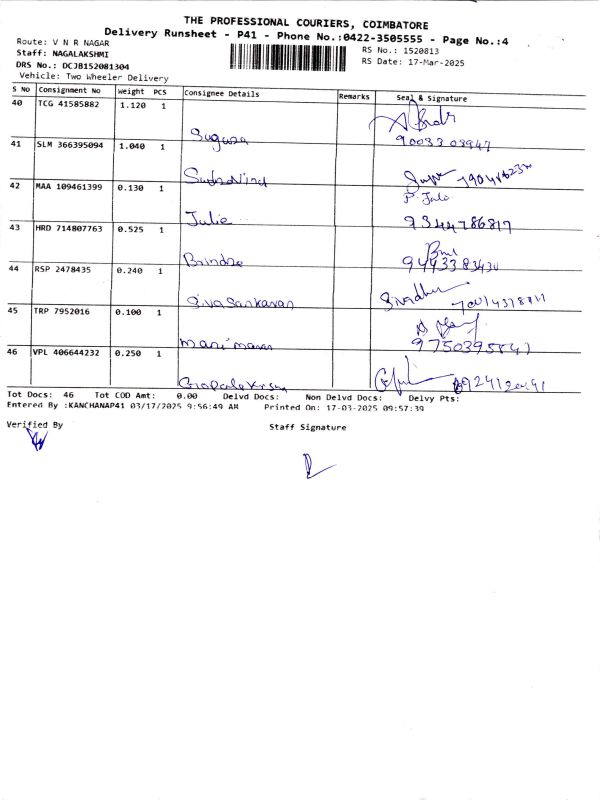 THE PROFESSIONAL COURIERS, COIMBATORE
Delivery Runsheet - P41 - Phone No.:0422-3505555 - Page No.:4
Route: V N R NAGAR
RS No.: 1520813
Staff: NAGALAKSHMI
RS Date: 17-Mar-2025
DRS No.: DCJB152081304
Vehicle: Two Wheeler Delivery
S No Consignment No Weight PCS Consignee Details Remarks Seal & Signature
40 TCG 41585882 1.120 1
Suguna
41 SLM 366395094 1.040 1
42 MAA 109461399 0.130 1
Julie
9344786817
43 HRD 714807763 0.525 1
44 RSP 2478435 0.240 1
Sivasankaran
45 TRP 7952016 0.100 1
46 VPL 406644232 0.250 1
Tot Docs: 46 Tot COD Amt: 0.00 Delvd Docs: Non Delvd Docs: Delvy Pts:
Entered By :KANCHANAP41 03/17/2025 9:56:49 AM Printed On: 17-03-2025 09:57:39
Verified By
Staff Signature